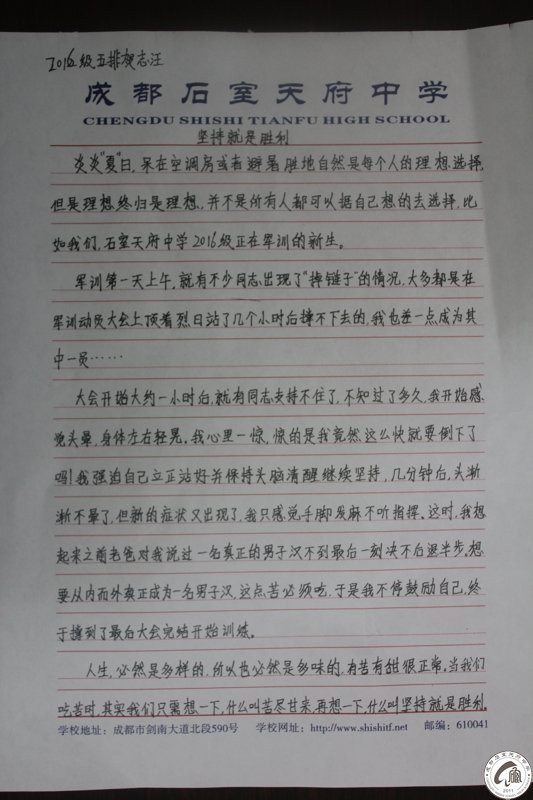 2016级五排贺志汪
成都石室天府中学
CHENGDU SHISHI TIANFU HIGH SCHOOL
坚持就是胜利
炎炎"夏"日，呆在空调房或者避暑胜地自然是每个人的理想选择，
但是理想终归是理想，并不是所有人都可以据自己想的去选择，比
如我们，石室天府中学2016级正在军训的新生。
军训第一天上午，就有不少同志出现了"掉链子"的情况，大多都是在
军训动员大会上顶着烈日站了几个小时后撑不下去的，我也差一点成为其
中一员……
大会开始大约一小时后，就有同志支持不住了，不知过了多久，我开始感
觉头晕，身体左右轻晃。我心里一惊，惊的是我竟然这么快就要倒下了
吗！我强迫自己立正站好并保持头脑清醒继续坚持，几分钟后，头渐
渐不晕了，但新的症状又出现了，我只感觉手脚发麻不听指挥、这时，我想
起来之前老爸对我说过一名真正的男子汉不到最后一刻决不后退半步。想
要从内而外真正成为一名男子汉，这点苦必须吃，于是我不停鼓励自己，终
于撑到了最后大会完结开始训练。
人生，必然是多样的，所以也必然是多味的，有苦有甜很正常。当我们
吃苦时，其实我们只需想一下，什么叫苦尽甘来，再想一下，什么叫坚持就是胜利。
学校地址：成都市剑南大道北段590号 学校网址：http://www.shishitf.net 邮编：610041
2011